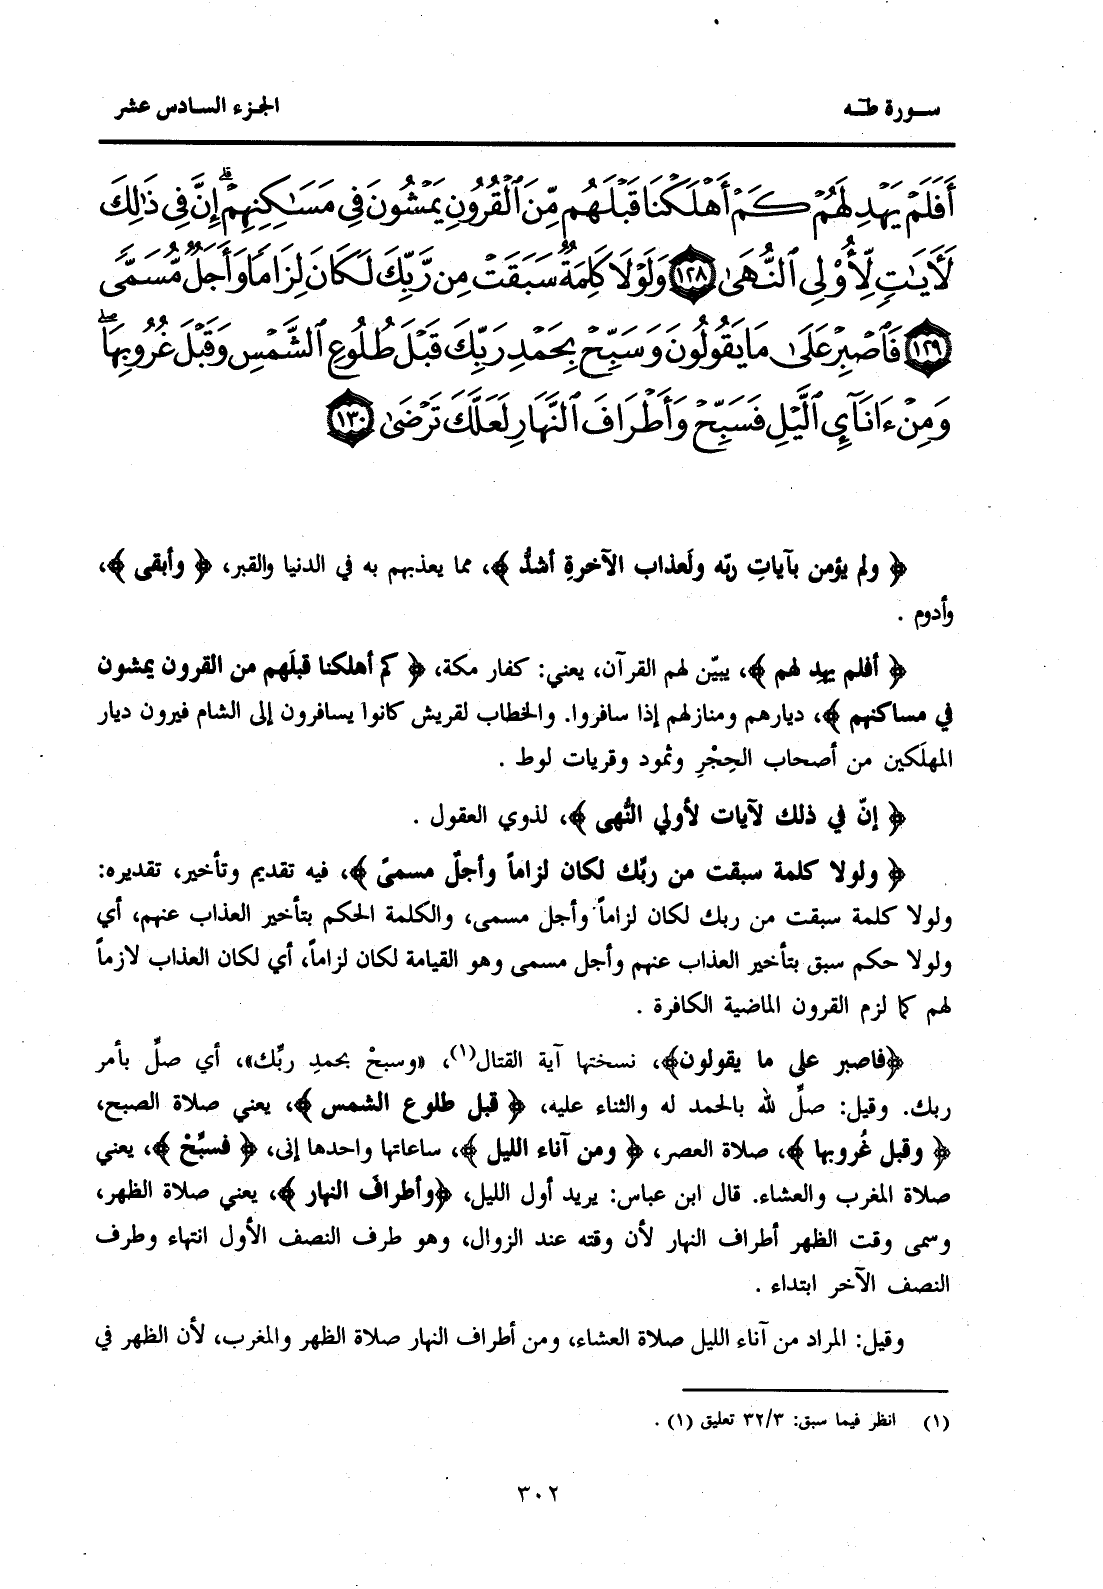 سورة طـٰه
الجزء السادس عشر
أَفَلَمْ يَهْدِ لَهُمْ كَمْ أَهْلَكْنَا قَبْلَهُم مِّنَ ٱلْقُرُونِ يَمْشُونَ فِى مَسَٰكِنِهِمْ ۗ إِنَّ فِى ذَٰلِكَ
لَءَايَٰتٍ لِّأُو۟لِى ٱلنُّهَىٰ ﴿١٢٨﴾ وَلَوْلَا كَلِمَةٌ سَبَقَتْ مِن رَّبِّكَ لَكَانَ لِزَامًا وَأَجَلٌ مُّسَمًّى
﴿١٢٩﴾ فَٱصْبِرْ عَلَىٰ مَا يَقُولُونَ وَسَبِّحْ بِحَمْدِ رَبِّكَ قَبْلَ طُلُوعِ ٱلشَّمْسِ وَقَبْلَ غُرُوبِهَا ۖ
وَمِنْ ءَانَآئِ ٱلَّيْلِ فَسَبِّحْ وَأَطْرَافَ ٱلنَّهَارِ لَعَلَّكَ تَرْضَىٰ ﴿١٣٠﴾
﴿ ولم يؤمن بآياتِ ربّه ولَعذاب الآخرةِ أشدُّ ﴾، مما يعذبهم به في الدنيا والقبر، ﴿ وأبقى ﴾،
وأدوم .
﴿ أفلم يهدِ لهم ﴾، يبيّن لهم القرآن، يعني: كفار مكة، ﴿ كم أهلكنا قبلَهم من القرون يمشون
في مساكنهم ﴾، ديارهم ومنازلهم إذا سافروا. والخطاب لقريش كانوا يسافرون إلى الشام فيرون ديار
المهلَكين من أصحاب الحِجْرِ وثمود وقريات لوط .
﴿ إنّ في ذلك لآيات لأولي النُّهى ﴾، لذوي العقول .
﴿ ولولا كلمة سبقت من ربِّك لكان لزاماً وأجلٌ مسمىً ﴾، فيه تقديم وتأخير، تقديره:
ولولا كلمة سبقت من ربك لكان لزاماً وأجل مسمى، والكلمة الحكم بتأخير العذاب عنهم، أي
ولولا حكم سبق بتأخير العذاب عنهم وأجل مسمى وهو القيامة لكان لزاماً، أي لكان العذاب لازماً
لهم كما لزم القرون الماضية الكافرة .
﴿فاصبر على ما يقولون﴾، نسختها آية القتال(١)، «وسبحْ بحمدِ ربِّك»، أي صلِّ بأمر
ربك. وقيل: صلِّ لله بالحمد له والثناء عليه، ﴿ قبل طلوع الشمس ﴾، يعني صلاة الصبح،
﴿ وقبل غُروبها ﴾، صلاة العصر، ﴿ ومن آناء الليل ﴾، ساعاتها واحدها إنى، ﴿ فسبِّحْ ﴾، يعني
صلاة المغرب والعشاء. قال ابن عباس: يريد أول الليل، ﴿وأطرافَ النهار ﴾، يعني صلاة الظهر،
وسمى وقت الظهر أطراف النهار لأن وقته عند الزوال، وهو طرف النصف الأول انتهاء وطرف
النصف الآخر ابتداء .
وقيل: المراد من آناء الليل صلاة العشاء، ومن أطراف النهار صلاة الظهر والمغرب، لأن الظهر في
(١) انظر فيما سبق: ٣٢/٣ تعليق (١) .
٣٠٢